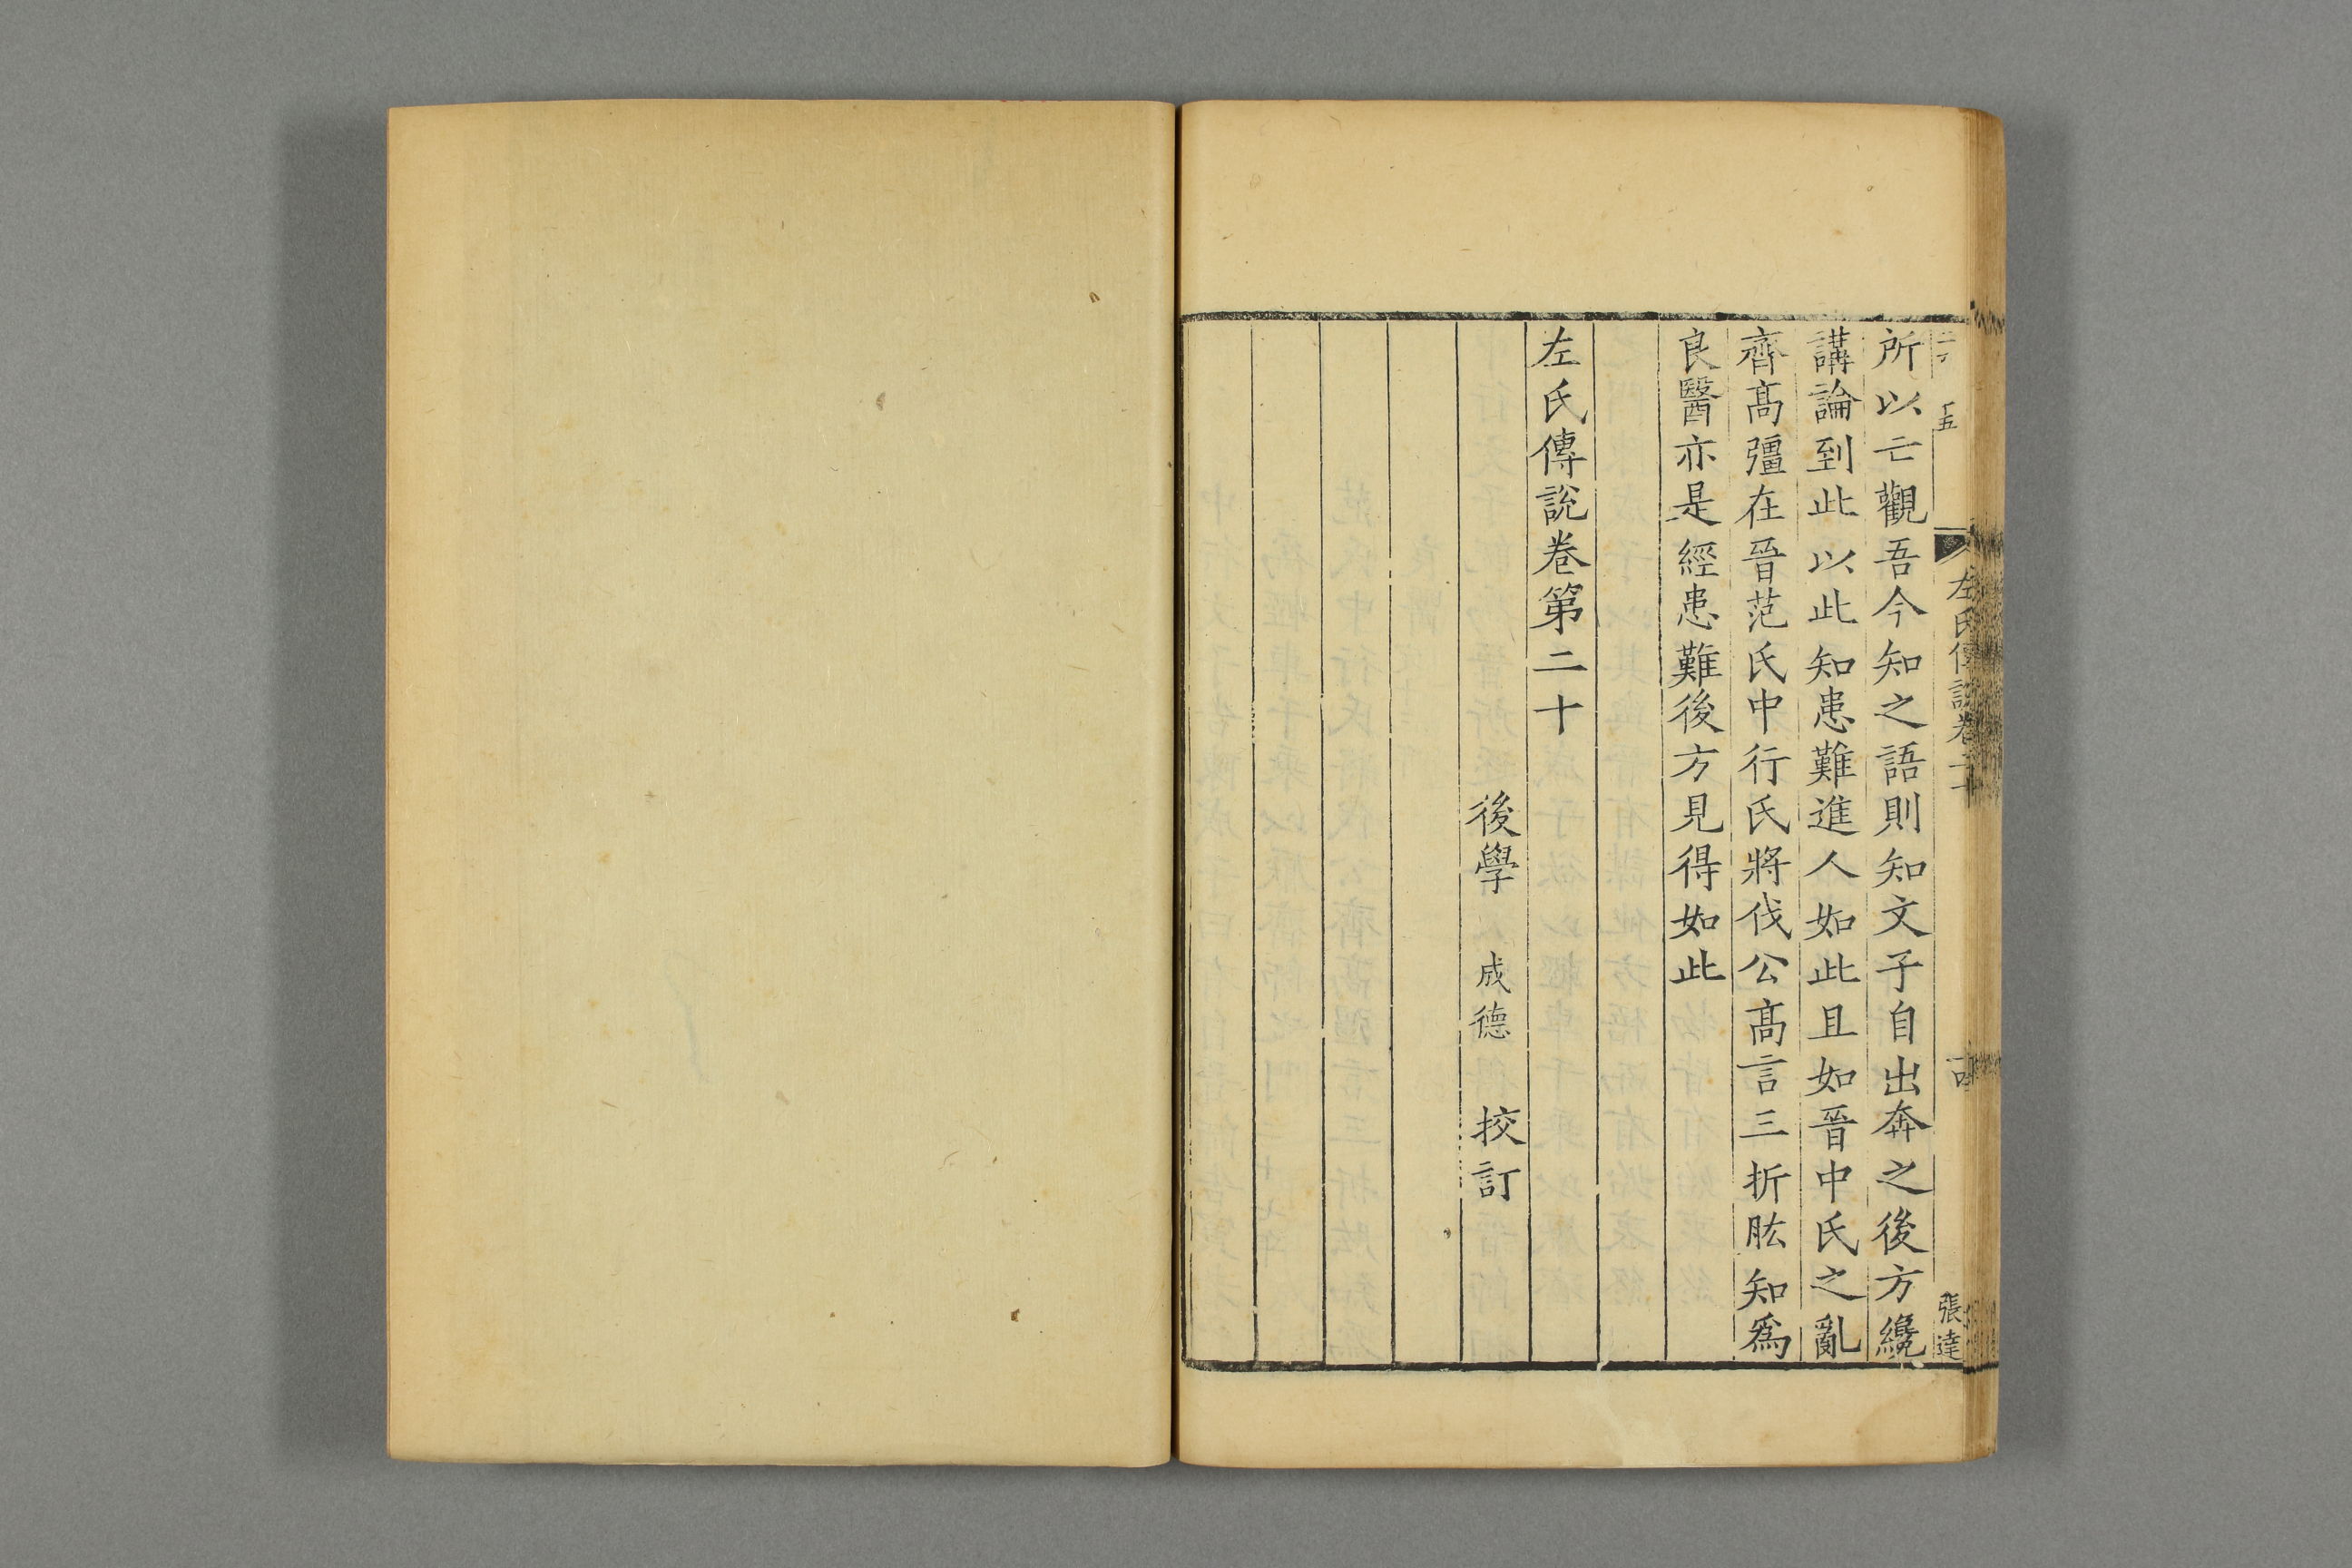 左氏傳說卷二十
張達
所以亡觀吾今知之語則知文子自出奔之後方纔
講論到此以此知患難進人如此且如晉中氏之亂
齊髙彊在晉范氏中行氏將伐公髙言三折肱知爲
良醫亦是經患難後方見得如此
左氏傳說卷第二十
後學 成德 挍訂